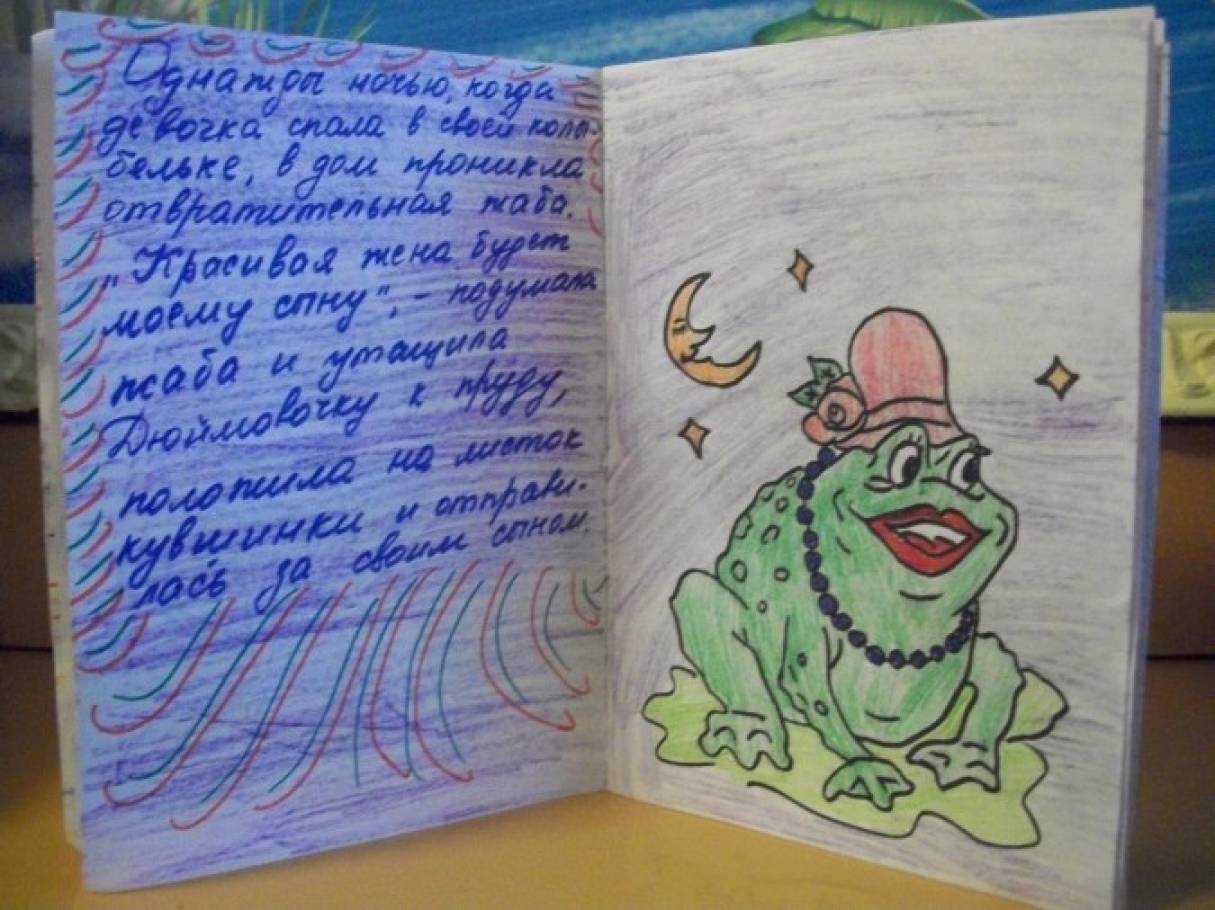 Однажды ночью, когда
девочка спала в своей колы-
бельке, в дом проникла
отвратительная жаба.
„Красивая жена будет
моему сыну", - подумала
жаба и утащила
Дюймовочку к пруду,
положила на листок
кувшинки и отправи-
лась за своим сыном.